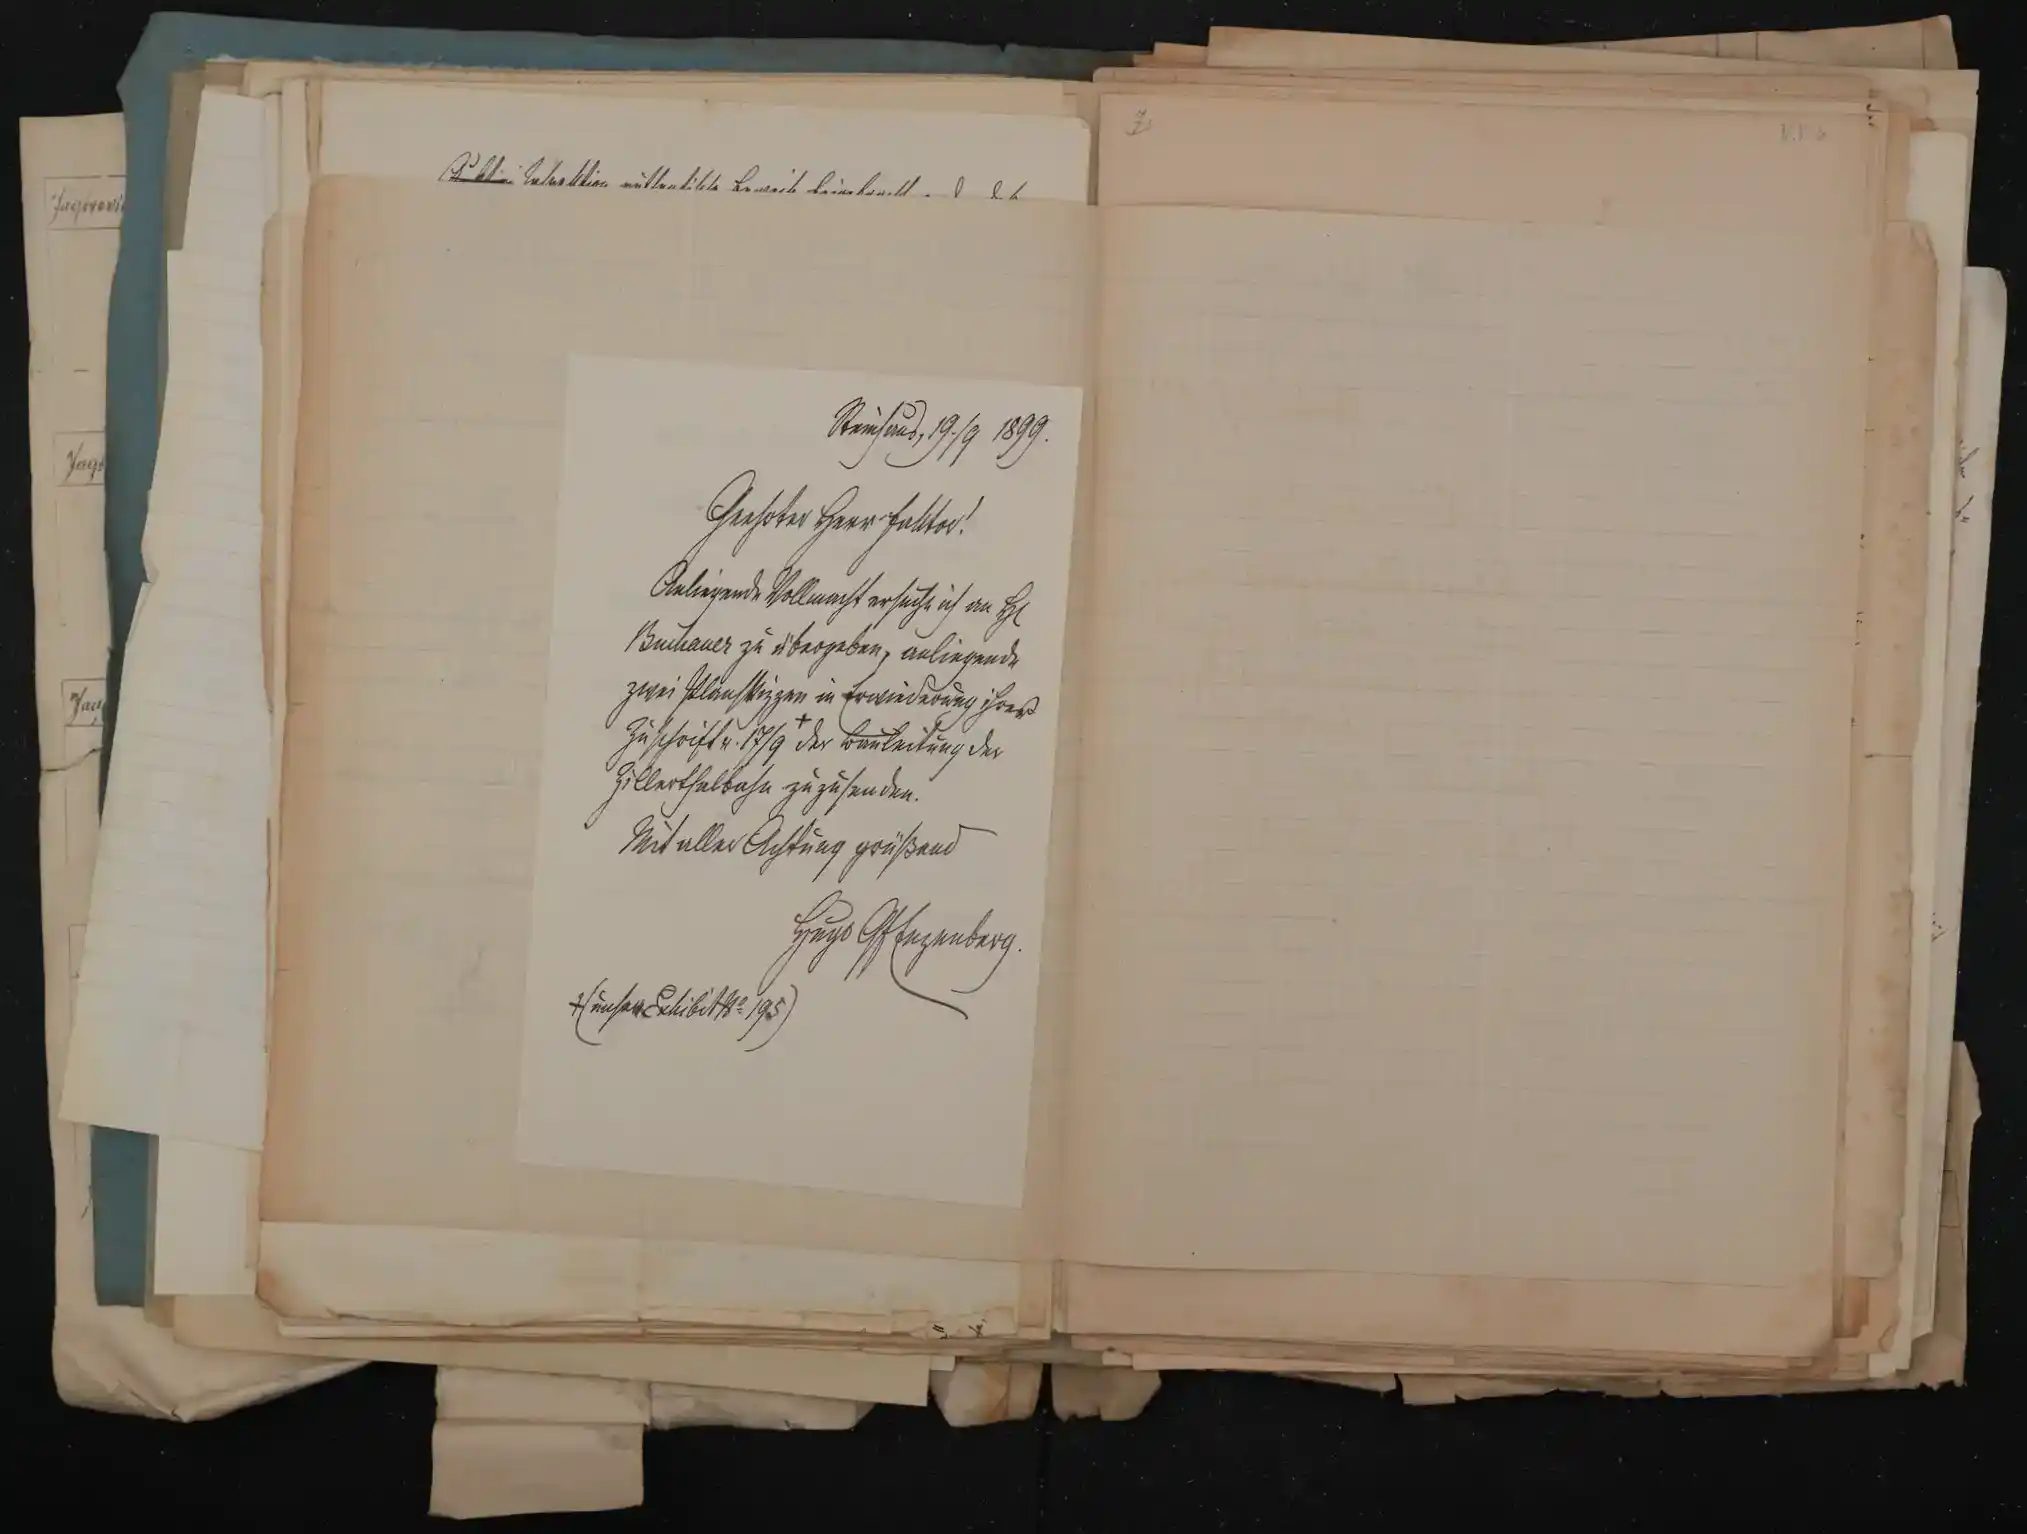 Steinhaus, 19./9 1899.
Geehrter Herr Faktor!
Anliegende Vollmacht ersuche ich an H
Buchauer zu übergeben, anliegende
zwei Planskizzen in Erwiederung ihrer
Zuschrift v. 17/9 + der Bauleitung der
Zillerthalbahn zuzusenden.
Mit aller Achtung grüßend
Hugo Gf Enzenberg.
+ (unser Exhibit No 195)